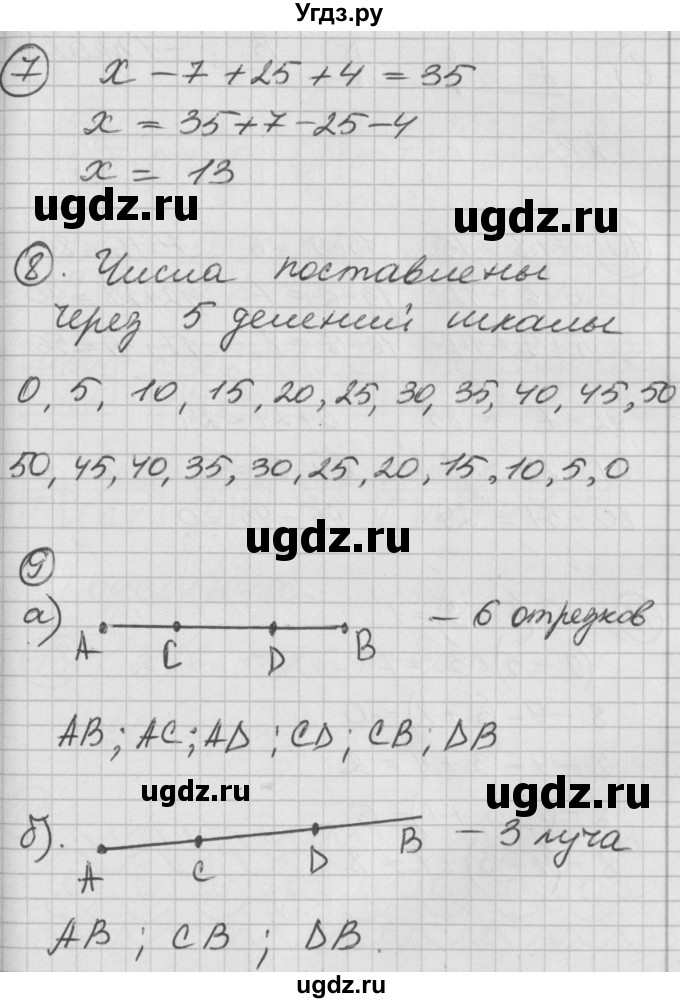 Угдз.ру
7 x − 7 + 25 + 4 = 35
x = 35+7−25−4
x = 13
ugdz.ru ugdz.ru
8. Числа поставлены
через 5 делений шкалы
0, 5, 10, 15, 20, 25, 30, 35, 40, 45, 50
50, 45, 40, 35, 30, 25, 20, 15, 10, 5, 0
ugdz.ru
9
а) A C D B — 6 отрезков
AB; AC; AD; CD; CB; DB
ugdz.ru ugdz.ru
б). A C D B — 3 луча
AB; CB; DB.
ugdz.ru